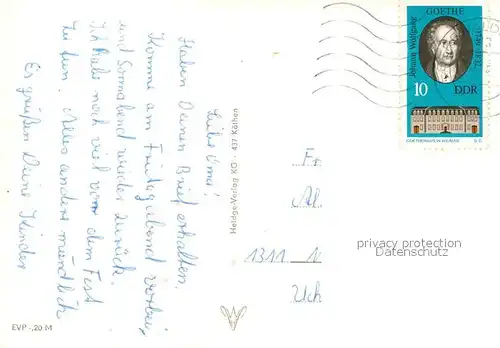 Liebe Omi!
Haben Deinen Brief erhalten.
Komme am Freitagabend vorbei
und Sonnabend wieder zurück.
Ich habe noch viel vor dem Fest
zu tun. Alles andere mündlich
Es grüßen Deine Kinder
EVP -,20 M
Heldge-Verlag KG · 437 Köthen
Johann Wolfgang
GOETHE
10
DDR
GOETHEHAUS IN WEIMAR
Fr
1311 N
Uch
privacy protection
Datenschutz